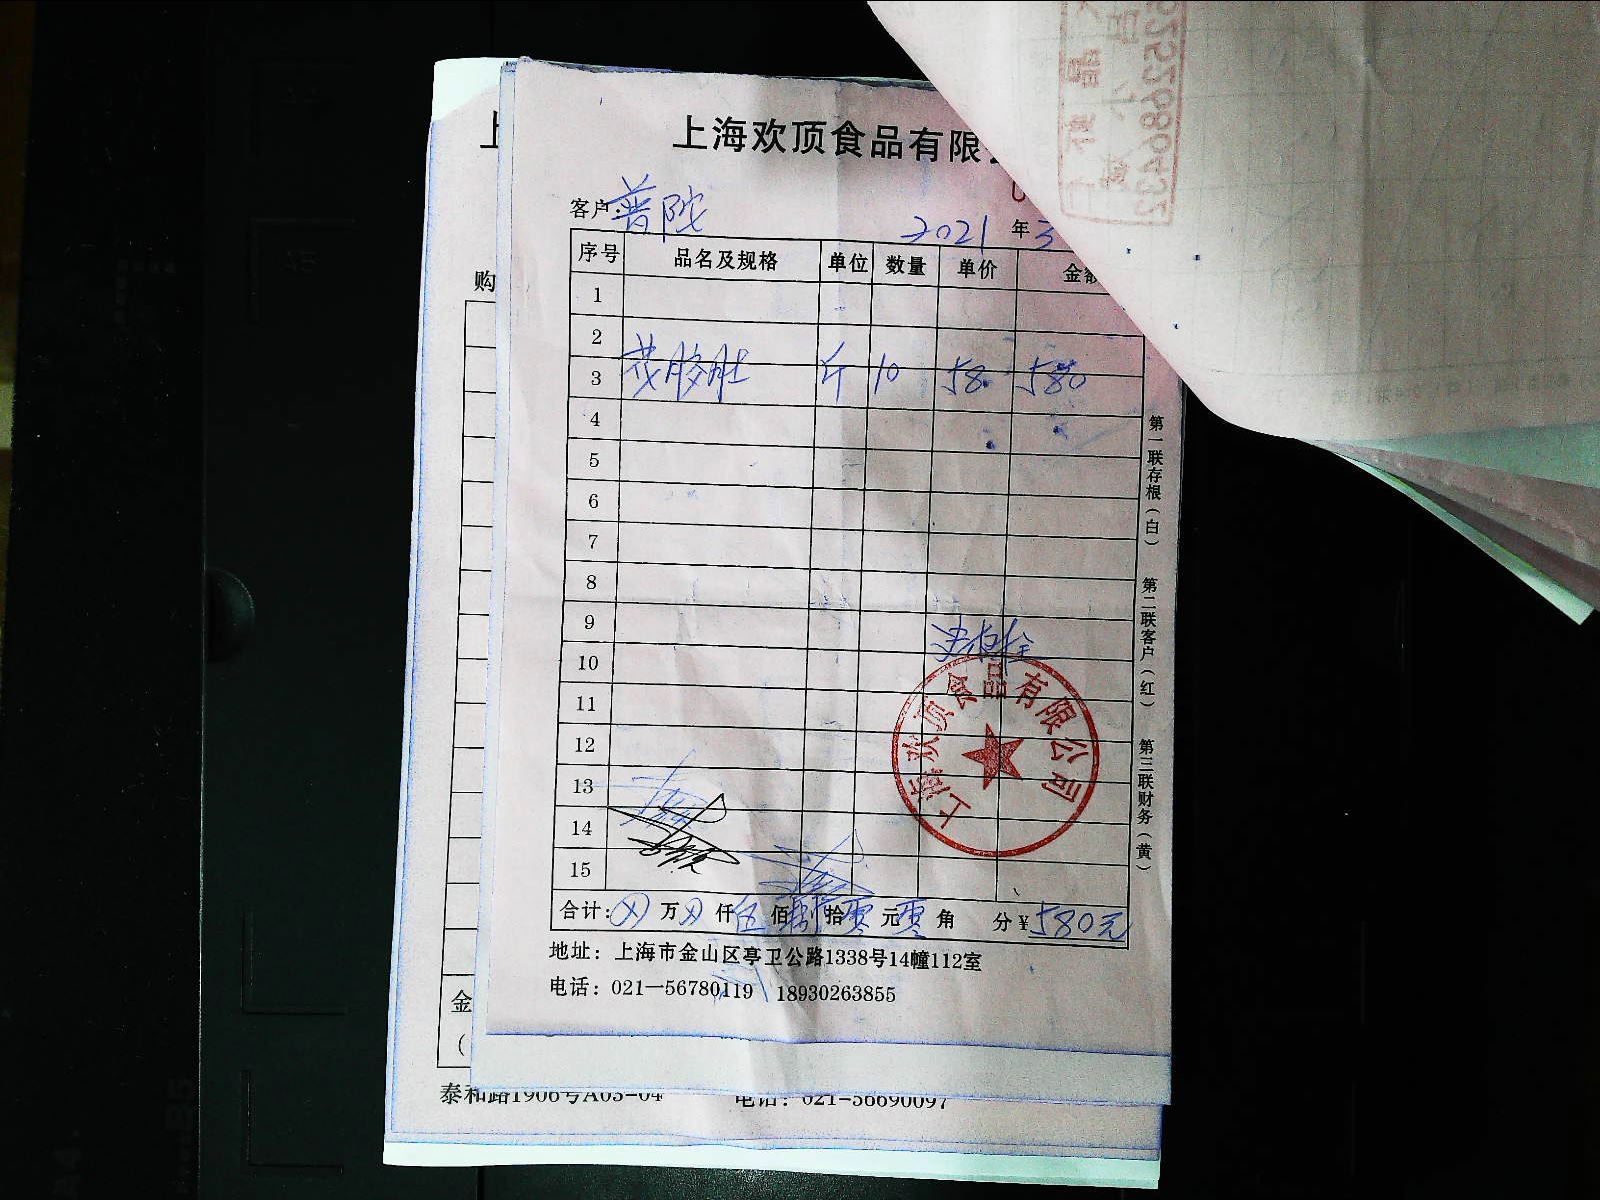 上海欢顶食品有限
客户: 普陀
2021 年 3
序号 品名及规格 单位 数量 单价 金额
1
2
3 花胶肚 斤 10 58 580
4
5
6
7
8
9
10
11
12
13
14
15
上海欢顶食品有限公司
合计: 万 仟 伍 佰 捌 拾 零 元 零 角 分 ¥580元
地址：上海市金山区亭卫公路1338号14幢112室
电话：021—56780119 18930263855
第一联存根（白） 第二联客户（红） 第三联财务（黄）
购
金
（
泰和路1906号A03-04 电话：021-56690097